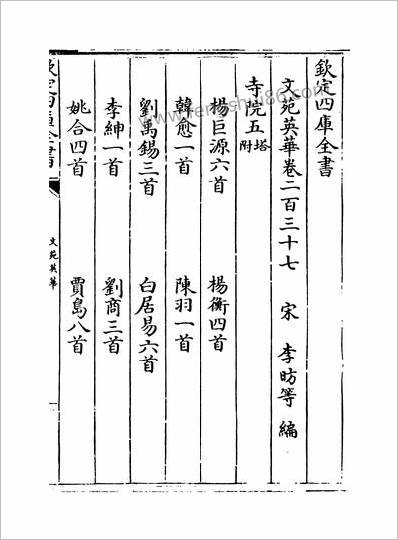 欽定四庫全書
文苑英華卷二百三十七 宋 李昉等 編
寺院五 附塔
楊巨源六首 楊衡四首
韓愈一首 陳羽一首
劉禹錫三首 白居易六首
李紳一首 劉商三首
姚合四首 賈島八首
欽定四庫全書
文苑英華
一